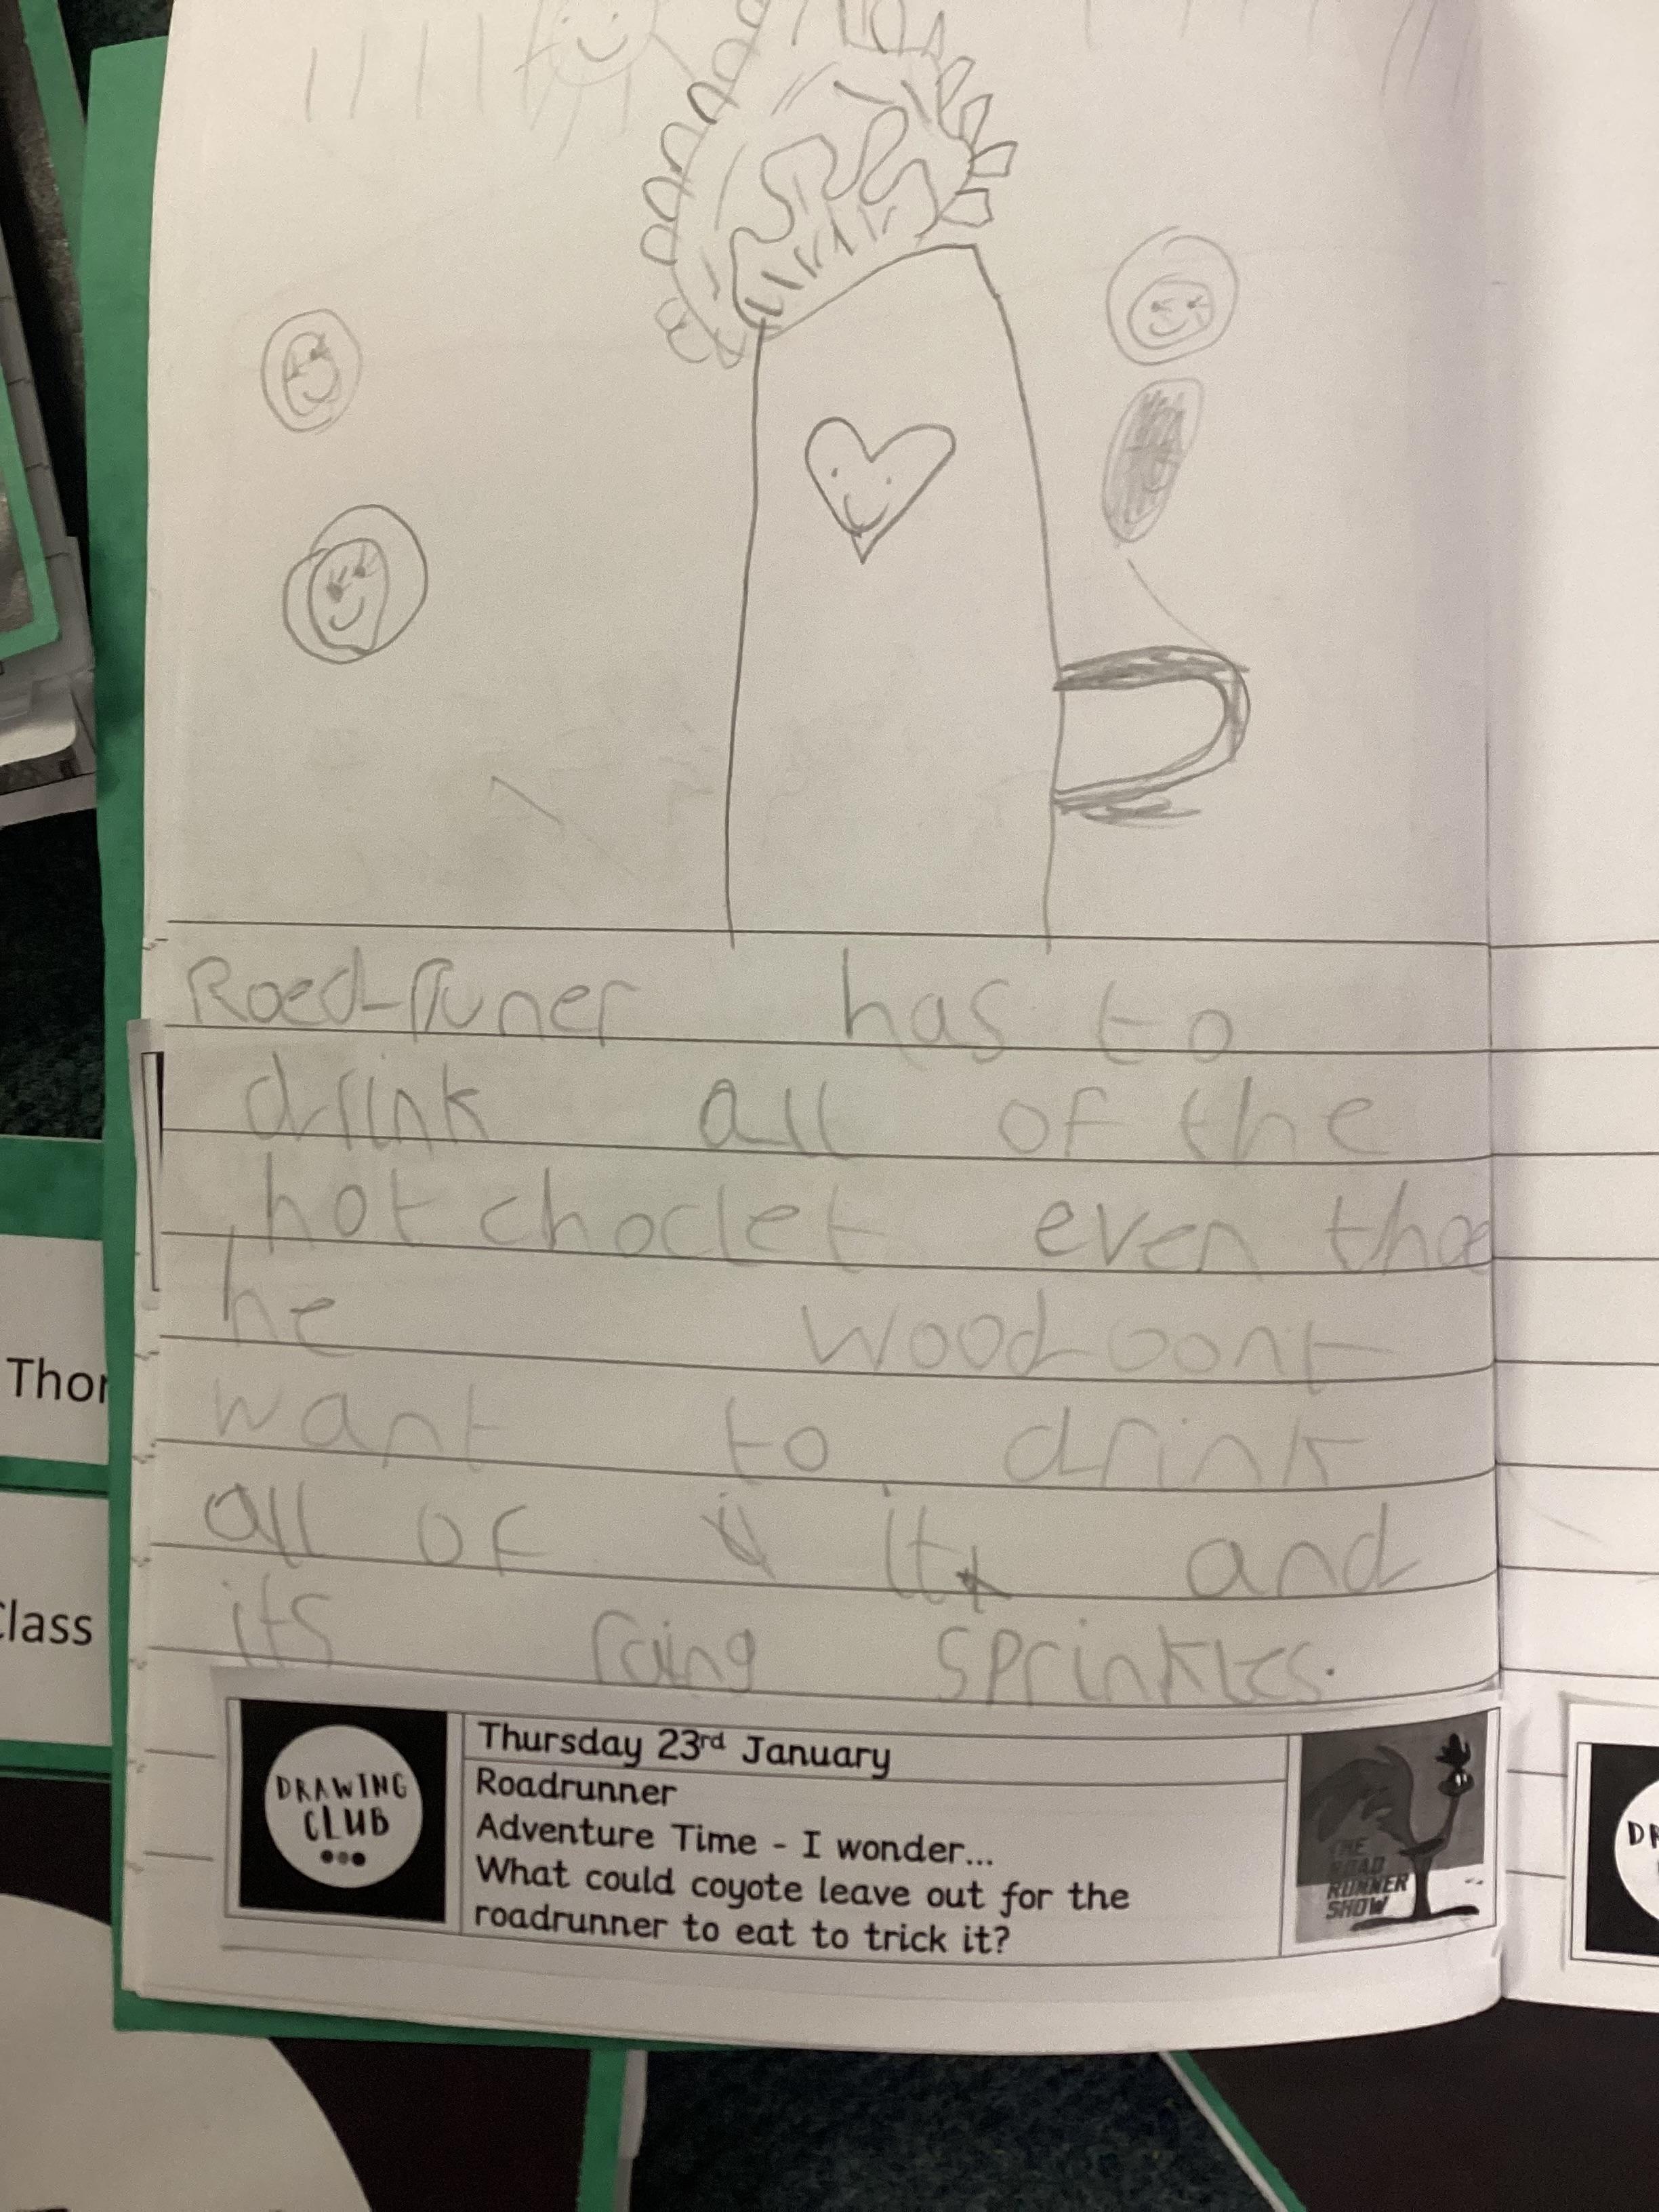 Roed-Runer has to
drink all of the
hot choclet even thoe
he woodoont
want to drink
all of it and
its raing sprinkles.
DRAWING
CLUB
Thursday 23rd January
Roadrunner
Adventure Time - I wonder...
What could coyote leave out for the
roadrunner to eat to trick it?
THE
ROAD
RUNNER
SHOW
Thor
Class
DR